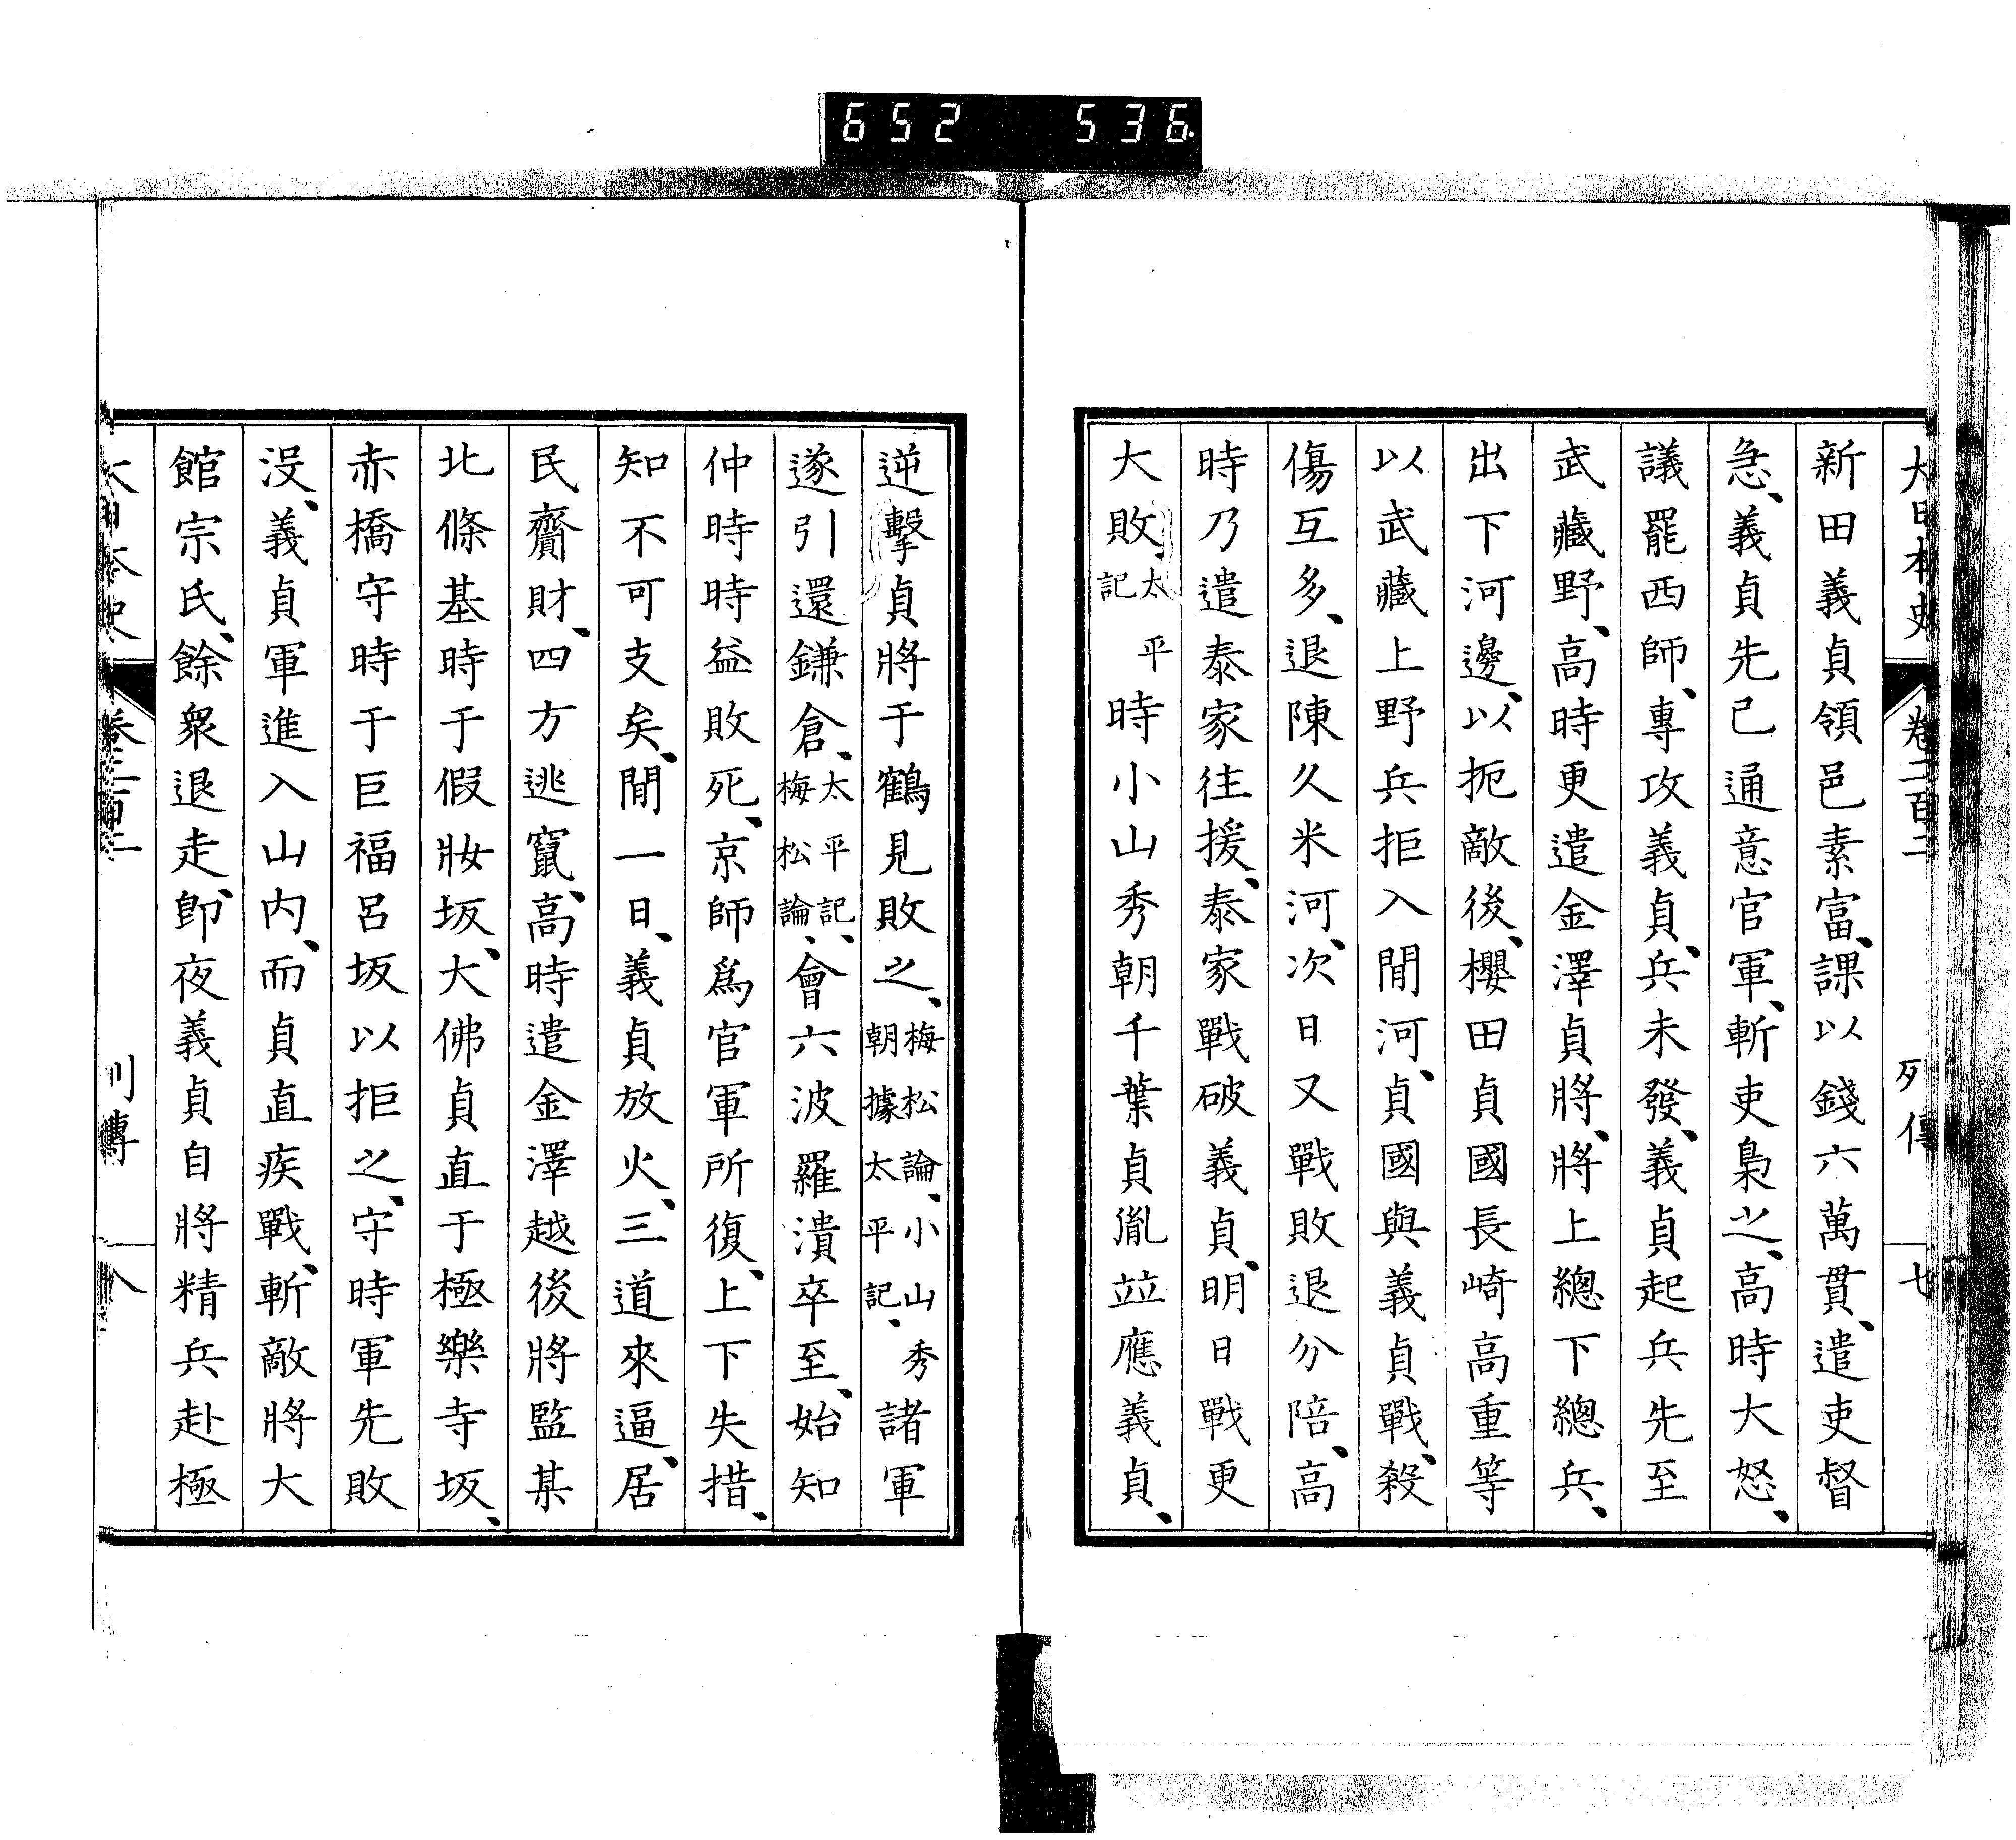 652 536.
大日本史 卷二百二 列傳 七
新田義貞領邑素富、課以錢六萬貫、遣吏督
急、義貞先已通意官軍、斬吏梟之、高時大怒、
議罷西師、專攻義貞、兵未發、義貞起兵先至
武藏野、高時更遣金澤貞將、將上總下總兵、
出下河邊、以扼敵後、櫻田貞國長崎高重等
以武藏上野兵拒入閒河、貞國與義貞戰、殺
傷互多、退陳久米河、次日又戰敗退分陪、高
時乃遣泰家往援、泰家戰破義貞、明日戰更
大敗、太平記時小山秀朝千葉貞胤竝應義貞、
逆擊貞將于鶴見敗之、梅松論、小山秀朝據太平記、諸軍
遂引還鎌倉、太平記、梅松論、會六波羅潰卒至、始知
仲時時益敗死、京師爲官軍所復、上下失措、
知不可支矣、閒一日、義貞放火、三道來逼、居
民齎財、四方逃竄、高時遣金澤越後將監某
北條基時于假妝坂、大佛貞直于極樂寺坂、
赤橋守時于巨福呂坂以拒之、守時軍先敗
沒、義貞軍進入山內、而貞直疾戰、斬敵將大
館宗氏、餘衆退走、卽夜義貞自將精兵赴極
大日本史 卷二百二 列傳 八